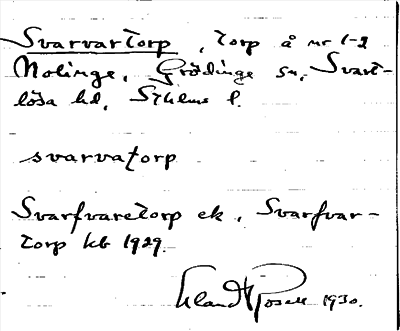 Svarvartorp, torp å nr 1-2
Molinge, Grödinge sn, Svart-
lösa hd, Sthlms l.
svarvatorp
Svarfvaretorp ek, Svarfvar-
torp kb 1929.
1930.